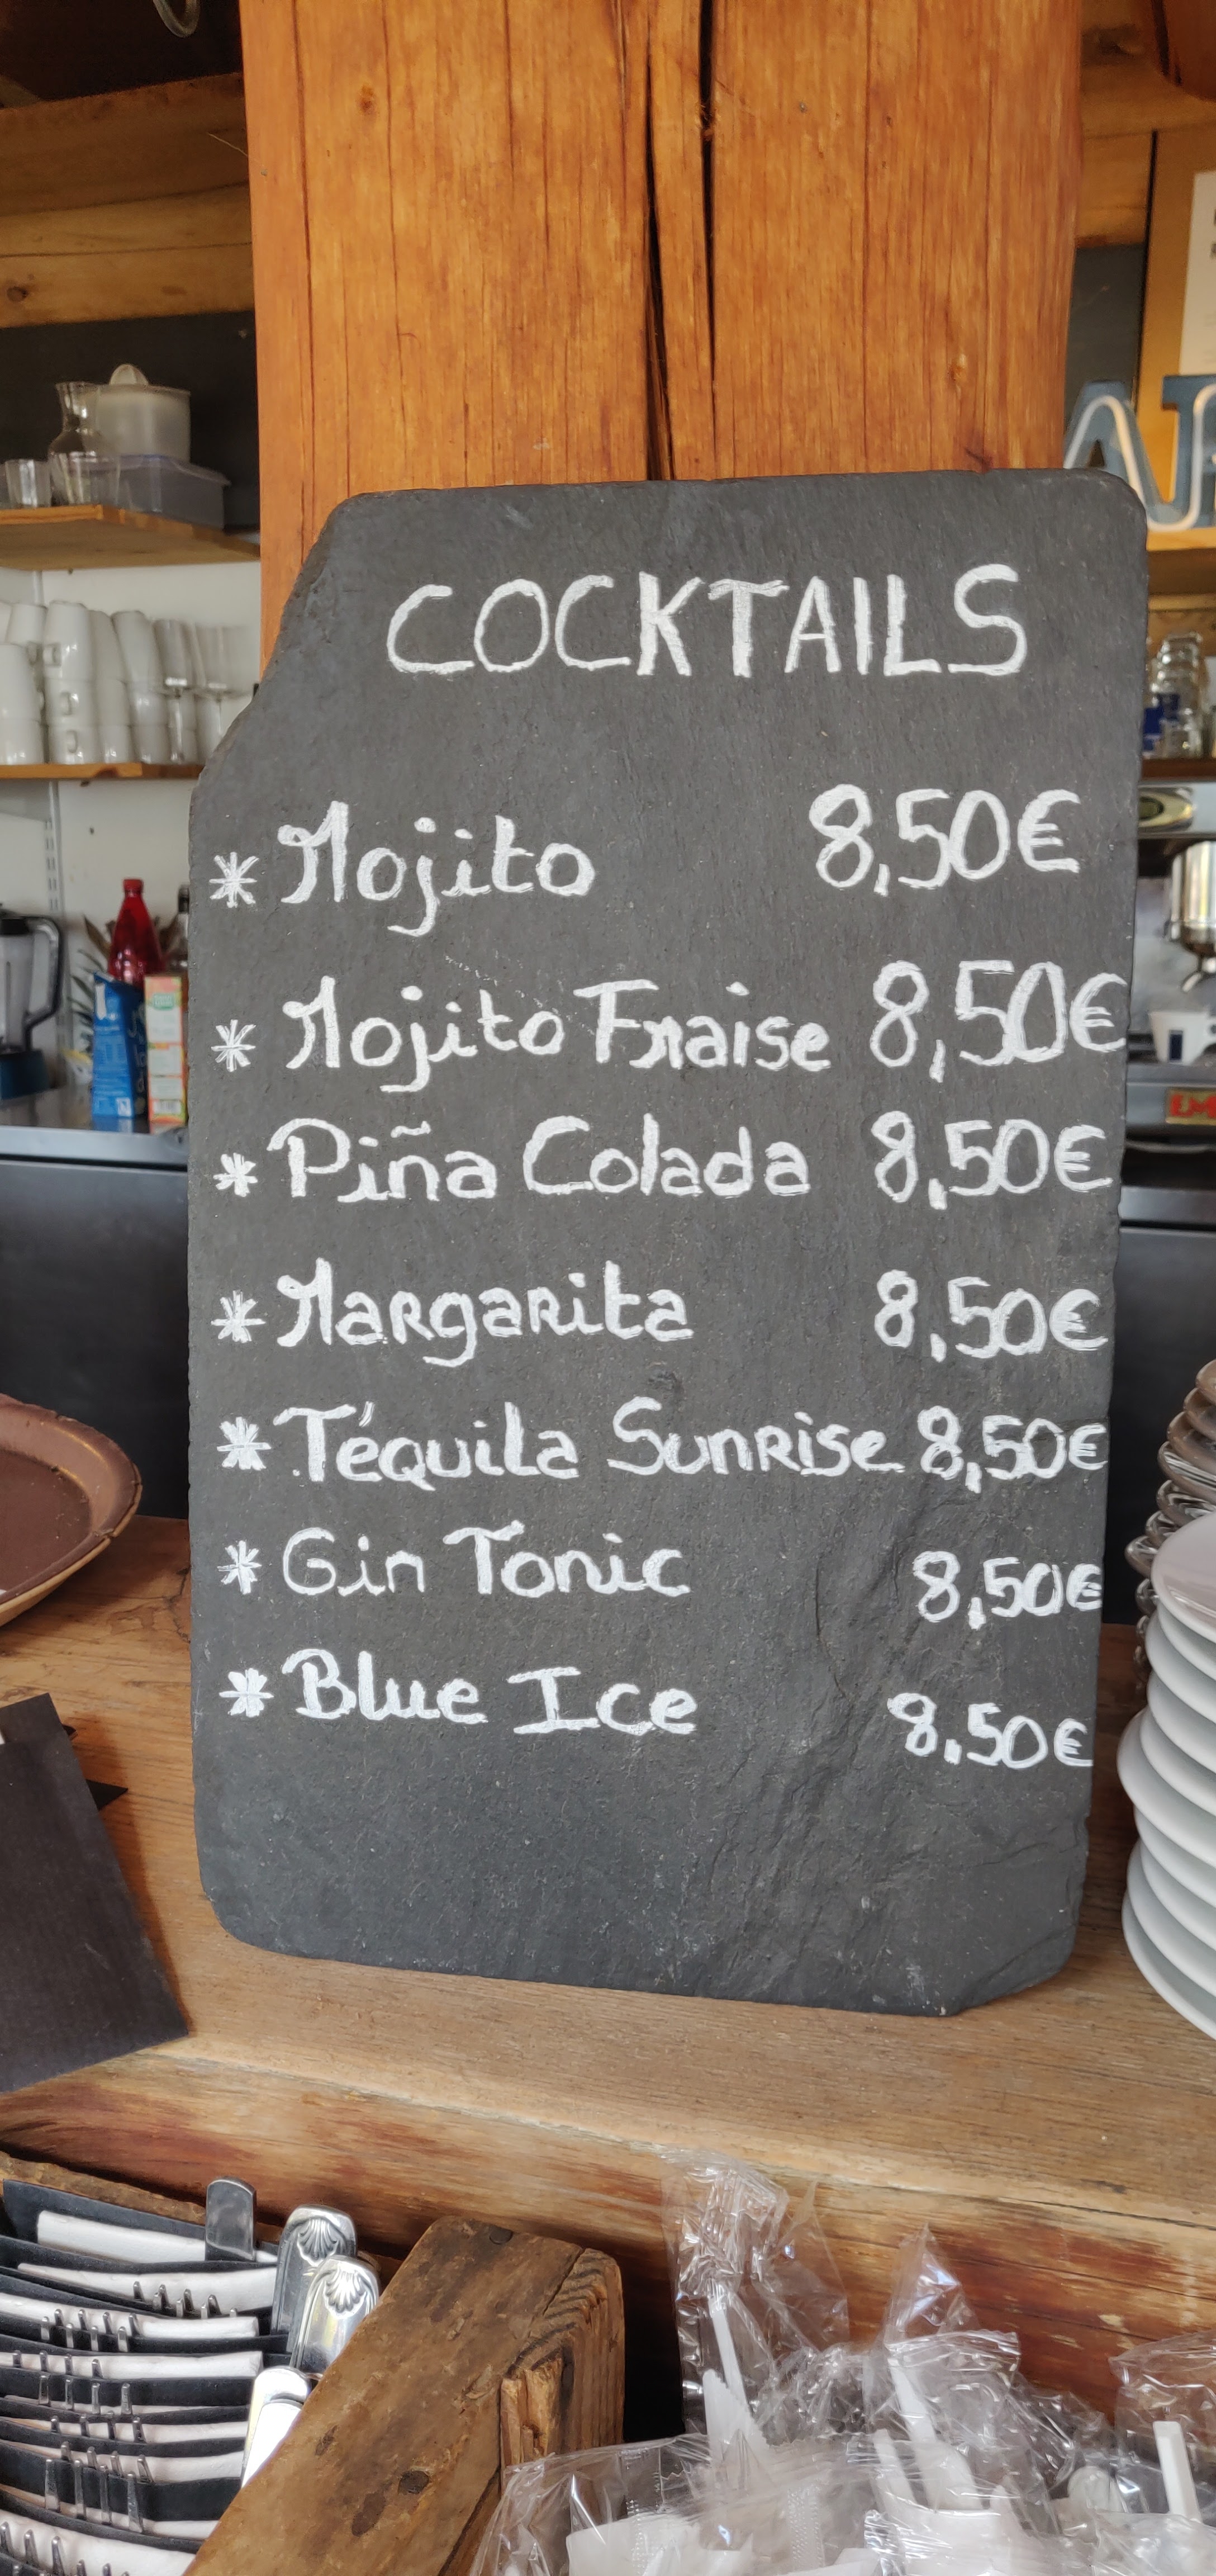 COCKTAILS
* Mojito 8,50€
* Mojito Fraise 8,50€
* Piña Colada 8,50€
* Margarita 8,50€
* Téquila Sunrise 8,50€
* Gin Tonic 8,50€
* Blue Ice 8,50€